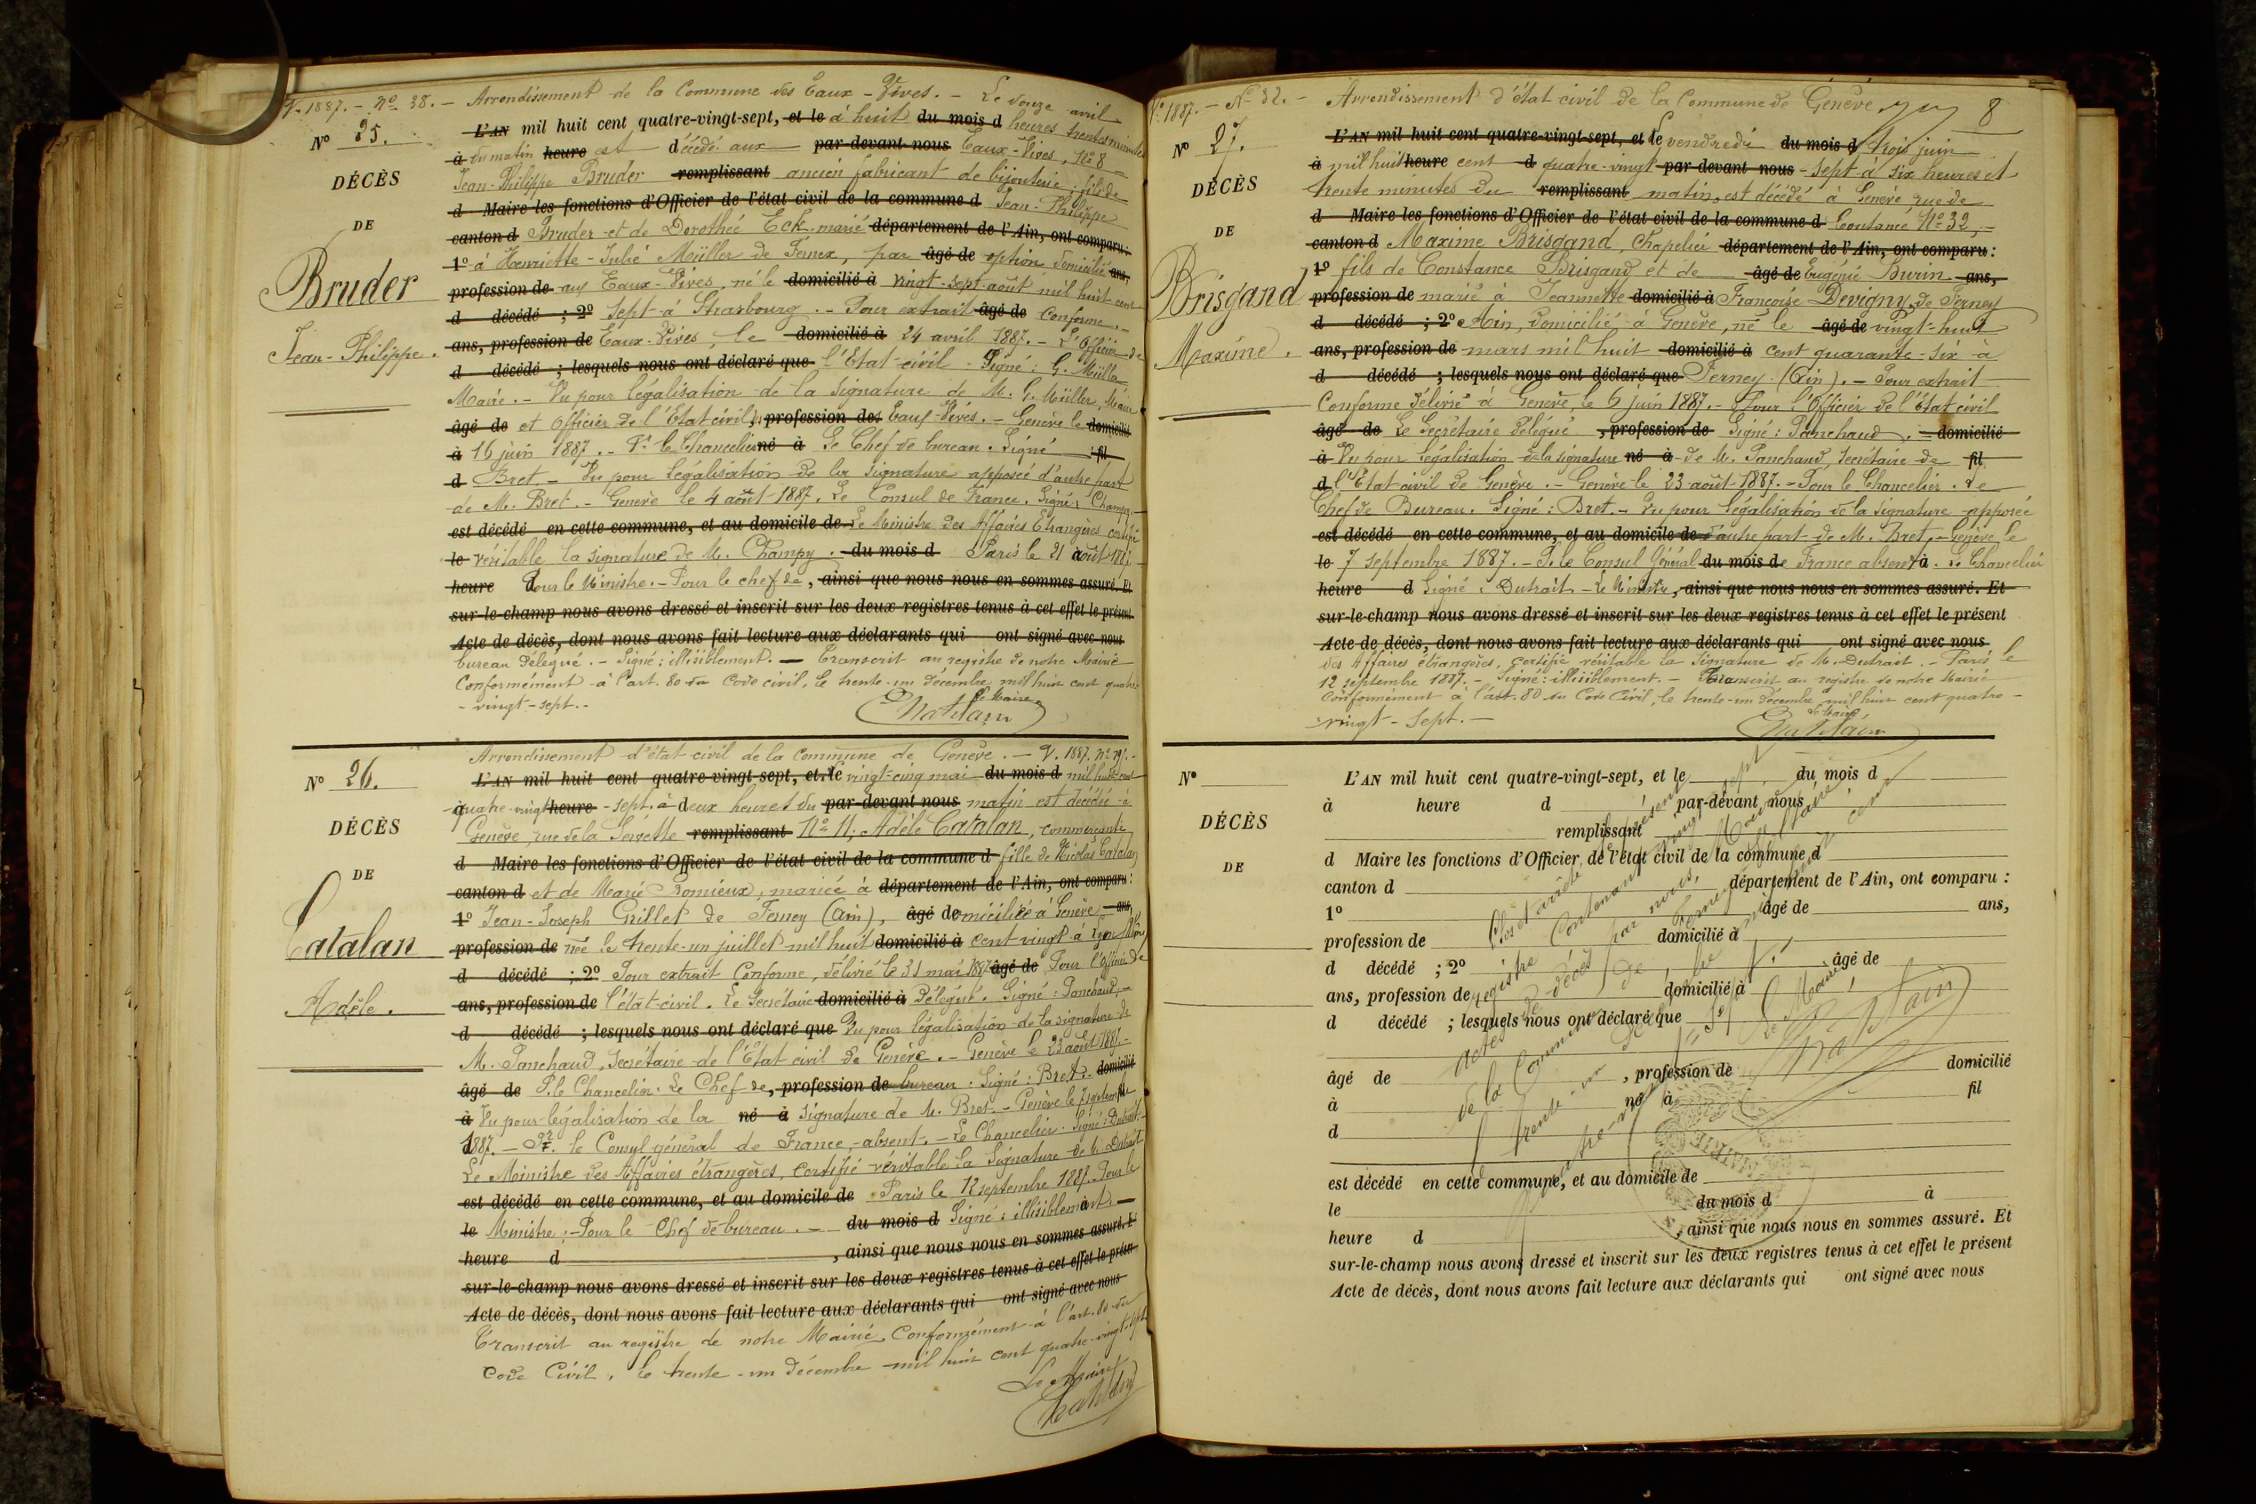 V. 1887. - No. 38. - Arrondissement de la Commune des Eaux-Vives. - Le douze avril
No 25.
L'AN mil huit cent quatre-vingt-sept, et le à huit du mois d heures trente minutes
à du matin heure est décédé aux par-devant nous Eaux-Vives, No 8
DÉCÈS
Jean-Philippe Bruder remplissant ancien fabricant de bijouterie, fils de
d Maire les fonctions d'Officier de l'état civil de la commune d Jean-Philippe
DE
canton d Bruder et de Dorothée Eck marié département de l'Ain, ont comparu :
1o à Henriette-Julie Müller de Fernex, par âgé de option domicilié ans,
Bruder
profession de aux Eaux-Vives, né le domicilié à vingt-sept août mil huit-cent
d décédé ; 2o sept à Strasbourg. - Pour extrait âgé de conforme. -
Jean-Philippe.
ans, profession de Eaux-Vives, le domicilié à 24 avril 1887. - L'Officier de
d décédé ; lesquels nous ont déclaré que l'Etat-civil. Signé : G. Müller
Maire. - Vu pour légalisation de la signature de M. G. Müller, Maire
âgé de et Officier de l'Etat civil des profession de Eaux-Vives. - Genève le domicilié
à 16 juin 1887. - Pr. le Chancelier né à Le Chef de bureau. Signé fil
d Bret. - Vu pour légalisation de la signature apposée d'autre part
de M. Bret. - Genève le 4 août 1887. Le Consul de France. Signé : Champy. -
est décédé en cette commune, et au domicile de Le Ministre des Affaires Etrangères certifie
le véritable la signature de M. Champy. du mois d Paris le 21 août 1887
heure d Pour le Ministre. - Pour le chef de, ainsi que nous nous en sommes assuré. Et
sur-le-champ nous avons dressé et inscrit sur les deux registres tenus à cet effet le présent
Acte de décès, dont nous avons fait lecture aux déclarants qui ont signé avec nous
bureau délégué. - Signé : illisiblement. - Transcrit au registre de notre Mairie
Conformément à l'art. 80 du Code civil, le trente-un décembre mil huit cent quatre-
-vingt-sept. -
Le Maire
Arrondissement d'état-civil de la commune de Genève. - V. 1887. No
No 26.
L'AN mil huit cent quatre-vingt-sept, et le vingt-cinq mai du mois d mil huit cent
à quatre-vingt heure -sept, à deux heures du par-devant nous matin est décédée à
DÉCÈS
Genève, rue de la Servette remplissant No 11, Adèle Catalan, commerçante
d Maire les fonctions d'Officier de l'état civil de la commune d fille de Nicolas Catalan
DE
canton d et de Marie Romieux, mariée à département de l'Ain, ont comparu :
1o Jean-Joseph Grillet de Ferney (Ain), âgé de domiciliée à Genève, ans,
Catalan
profession de née le trente-un juillet mil huit domicilié à cent vingt à Lyon Rhône
d décédé ; 2o Pour extrait Conforme, délivré le 31 mai 1887 âgé de Pour l'Officier de
Adèle.
ans, profession de l'état-civil. Le Secrétaire domicilié à Délégué. Signé : Panchaud. -
d décédé ; lesquels nous ont déclaré que Vu pour légalisation de la signature de
M. Panchaud, Secrétaire de l'Etat civil de Genève. - Genève le 23 août 1887. -
âgé de P. le Chancelier. Le Chef de, profession de bureau. Signé : Bret. domicilié
à Vu pour légalisation de la né à signature de M. Bret. - Genève le 7 septembre fil
d 1887. - Pr. le Consul général de France, absent. - Le Chancelier. Signé : Dutrait. -
Le Ministre des Affaires étrangères, certifie véritable la Signature de M. Dutrait
est décédé en cette commune, et au domicile de Paris le 12 septembre 1887. Pour le
le Ministre ; - Pour le Chef de bureau. - du mois d Signé : illisiblement. à -
heure d , ainsi que nous nous en sommes assuré. Et
sur-le-champ nous avons dressé et inscrit sur les deux registres tenus à cet effet le présent
Acte de décès, dont nous avons fait lecture aux déclarants qui ont signé avec nous
Transcrit au registre de notre Mairie, Conformément à l'art. 80 du
Code Civil, le trente-un décembre mil huit cent quatre-vingt-sept
Le Maire
V. 1887. - No 32. - Arrondissement d'état civil de la Commune de Genève 8
No 27.
L'AN mil huit cent quatre-vingt-sept, et le vendredi du mois d trois juin
à mil huit heure cent d quatre-vingt par-devant nous -sept à six heures et
DÉCÈS
trente minutes du remplissant matin, est décédé à Genève rue de
d Maire les fonctions d'Officier de l'état civil de la commune d Coutance No 32, -
DE
canton d Maxime Brisgand, Chapelier département de l'Ain, ont comparu :
1o fils de Constance Brisgand et de âgé de Eugénie Burin ans,
Brisgand
profession de marié à Jeannette domicilié à Françoise Devigny, de Ferney
d décédé ; 2o Ain, domicilié à Genève, né le âgé de vingt-huit
Maxime.
ans, profession de mars mil huit domicilié à cent quarante-six à
d décédé ; lesquels nous ont déclaré que Ferney (Ain). - Pour extrait
Conforme délivré à Genève le 6 juin 1887. - Pour l'Officier de l'état civil
âgé de Le Secrétaire délégué, profession de Signé : Panchaud. - domicilié
à Vu pour légalisation de la signature né à de M. Panchaud, secrétaire de fil
d l'Etat civil de Genève. - Genève le 23 août 1887. - Pour le Chancelier. Le
Chef de Bureau. Signé : Bret. - Vu pour légalisation de la signature apposée
est décédé en cette commune, et au domicile de d'autre part de M. Bret, - Genève, le
le 7 septembre 1887. - P. le Consul Général du mois de France absent à. Le Chancelier
heure d Signé : Dutrait - Le Ministre, ainsi que nous nous en sommes assuré. Et
sur-le-champ nous avons dressé et inscrit sur les deux registres tenus à cet effet le présent
Acte de décès, dont nous avons fait lecture aux déclarants qui ont signé avec nous
des Affaires étrangères, certifie véritable la Signature de M. Dutrait. - Paris, le
12 septembre 1887. - Signé : illisiblement. - Transcrit au registre de notre Mairie
Conformément à l'art. 80 du Code Civil, le trente-un décembre mil huit cent quatre-
vingt-sept. -
Le Maire
No
L'AN mil huit cent quatre-vingt-sept, et le du mois d
à heure d par-devant nous
DÉCÈS
remplissant
d Maire les fonctions d'Officier de l'état civil de la commune d
DE
canton d département de l'Ain, ont comparu :
1o âgé de ans,
profession de domicilié à
d décédé ; 2o âgé de
ans, profession de domicilié à
d décédé ; lesquels nous ont déclaré que
âgé de , profession de domicilié
à né à fil
d
est décédé en cette commune, et au domicile de
le du mois d à
heure d , ainsi que nous nous en sommes assuré. Et
sur-le-champ nous avons dressé et inscrit sur les deux registres tenus à cet effet le présent
Acte de décès, dont nous avons fait lecture aux déclarants qui ont signé avec nous
Clos et arrêté le présent
registre Contenant vingt-sept
actes de décès par nous, Maire
de la Commune de Ferney-Voltaire
Le Maire